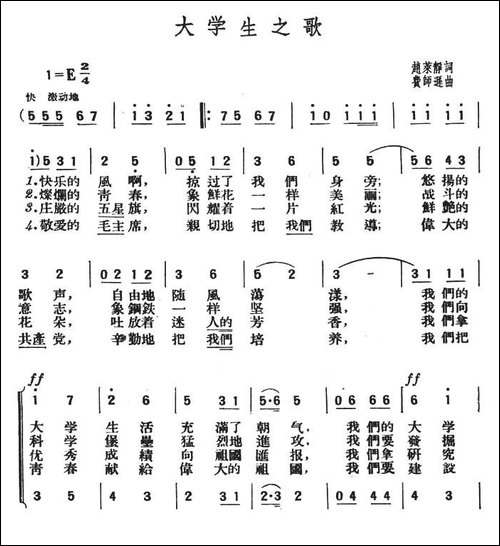 大学生之歌
1=E 2/4
趙萊靜詞
費師遜曲
快 激动地
(5 5 5 6 7 | i 3 2 i ‖: 7 5 6 7 | i 0 i i i | i i i i i |
i) 5 3 1 | 2 5 | 0 5 1 2 | 3 6 | 5 5 | 5 6 4 3 |
1.快乐的 風啊, 掠过了 我們 身旁; 悠揚的
2.燦爛的 青春, 象鮮花 一样 美丽; 战斗的
3.庄嚴的 五星旗, 閃耀着 一片 紅光; 鮮艷的
4.敬爱的 毛主席, 親切地 把我們 教導; 偉大的
3 2 | 0 2 1 2 | 3 6 | 5 2 | 3 - | 3 1 1 1 |
歌声, 自由地 随風 蕩漾, 我們的
意志, 象鋼鉄 一样 坚强, 我們向
花朵, 吐放着 迷人的 芳香, 我們拿
共產党, 辛勤地 把我們 培养, 我們把
ff ff
i 7 | 2 6 | 5 2 | 3 1 | 5·6 5 | 0 6 6 6 | 6 i |
大学 生活 充滿了 朝气, 我們的 大学
科学 堡壘 猛烈地 進攻, 我們要 發掘
优秀 成績 向祖國 匯报, 我們拿 研究
青春 献給 偉大的 祖國, 我們要 建設
3 5 | 4 2 | 2 3 1 | 2·3 2 | 0 4 4 4 | 4 3 |